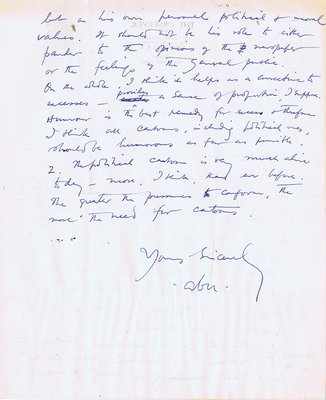 but as his own personal political & moral
values. It should not be his role to either
pander to the opinions of the newspaper
or the feelings of the general public.
On the whole I think it helps as a corrective to
excesses — provides a sense of proportion, I suppose.
Humour is the best remedy for excess & therefore
I think all cartoons, including political ones,
should be humorous as far as possible.
2. The political cartoon is very much alive
today — more, I think, than ever before.
The greater the pressures to conform, the
more the need for cartoons.
Yours sincerely
abu.